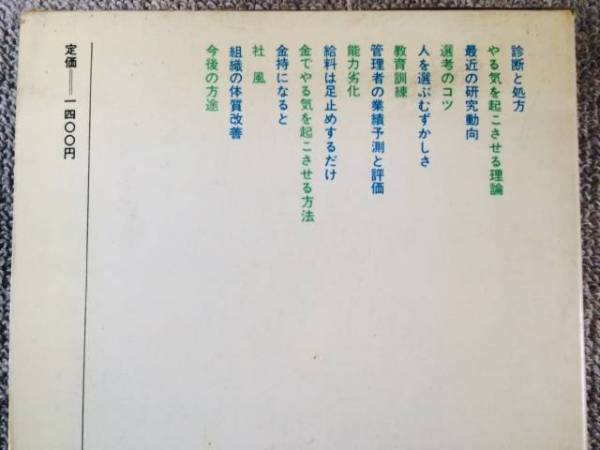 診断と処方
やる気を起こさせる理論
最近の研究動向
選考のコツ
人を選ぶむずかしさ
教育訓練
管理者の業績予測と評価
能力劣化
給料は足止めするだけ
金でやる気を起こさせる方法
金持になると
社風
組織の体質改善
今後の方途
定価──一四〇〇円